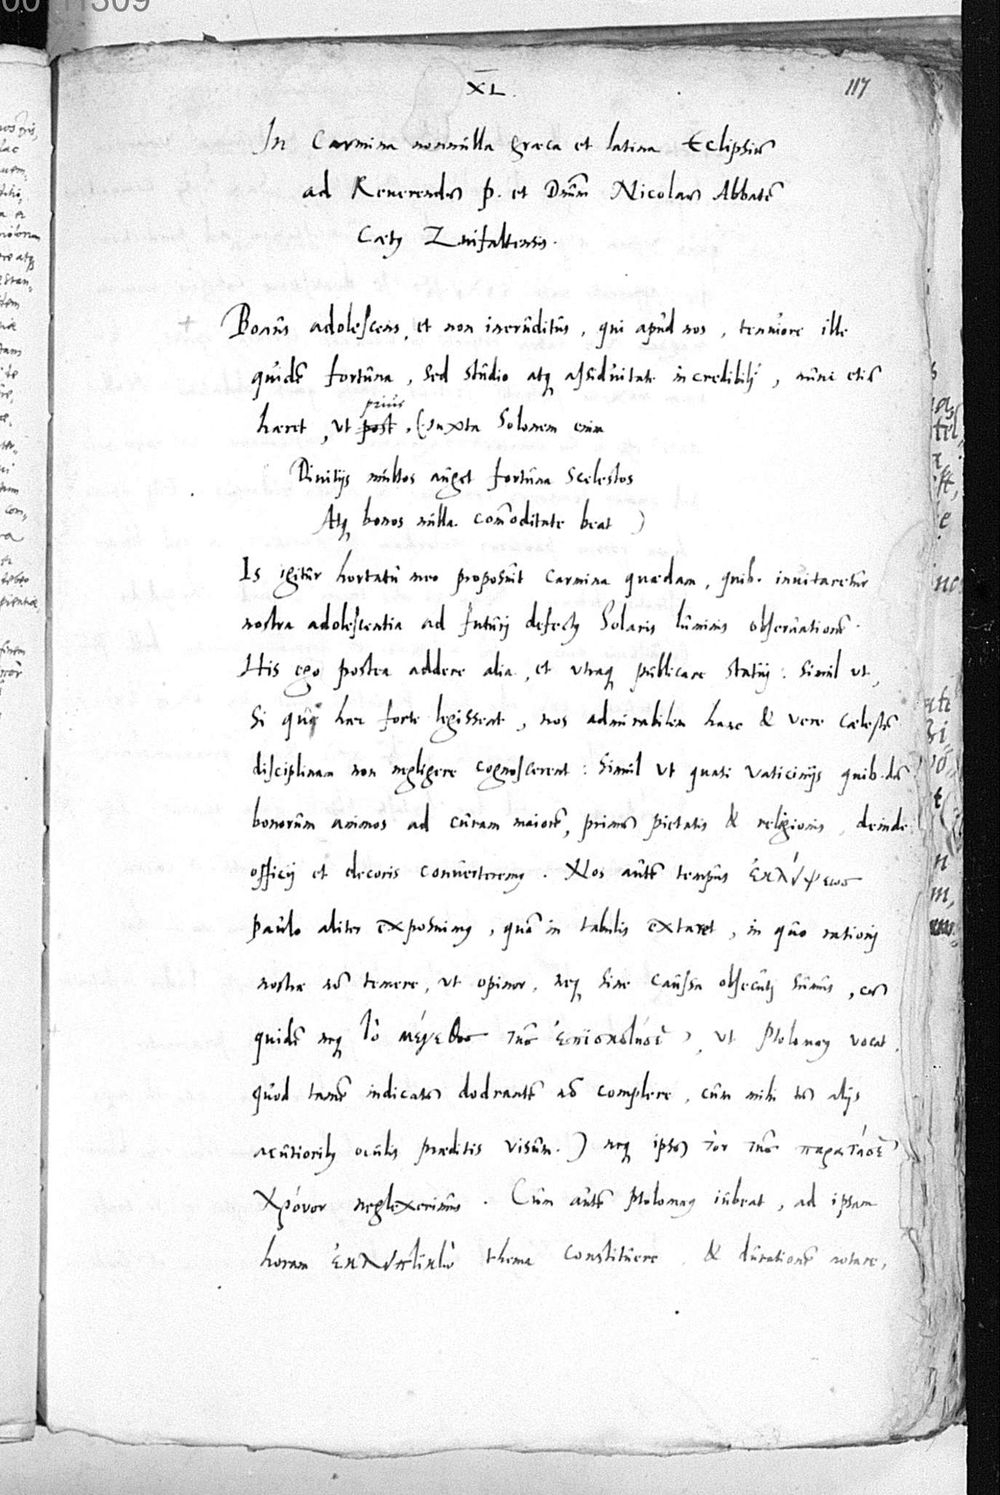 XL.
117
In Carmina nonnulla græca et latina Eclipsiũ
ad Reuerendũ p. et Dnũm Nicolaũ Abbatẽ
Cætꝰ Zuifaltensis.
Bonus adolescens, et non ineruditus, qui apud nos, tenuiore ille
quidẽ fortuna, sed studio atq assiduitate incredibili, nunc etiã
prius
hæret, ut post, (Iuxta Solonem enim
Diuitijs multos auget fortuna scelestos
Atq bonos nulla commoditate beat)
Is igitur hortatu meo proposuit carmina quædam, quib. inuitaretur
nostra adolescentia ad futuri defectꝰ Solaris luminis obseruationẽ.
His ego postea addere alia, et utraq publicare statui: simul ut,
si qui hæc forte legissent, nos admirabilem hanc & vere cælestẽ
disciplinam non negligere cognoscerent: Simul ut quasi vaticinijs quib.dã
bonorum animos ad curam maiorẽ, primũ pietatis & religionis, deinde
officij et decoris conuerteremꝰ. Nos autẽ tempus ἐκλείψεως
paulo aliter exposuimꝰ, quã in tabulis extaret, in quo rationi
nostræ nõ temere, ut opinor, neq sine caussa obsecuti sumus, cũ
quidẽ neq τὸ μέγεθος τῆς ἐπισκοτήσεως, ut Ptolomæꝰ vocat,
quod tamẽ indicatũ dodrantẽ nõ complere, cum mihi tũ alijs
acutioribꝰ oculis præditis visum.) neq ipsũ τὸν τῆς παρατάσεως
χρόνον neglexerimus. Cum autẽ Ptolomæꝰ iubeat, ad ipsam
horam ἐκλειπτικὴν thema constituere, & durationẽ notare,